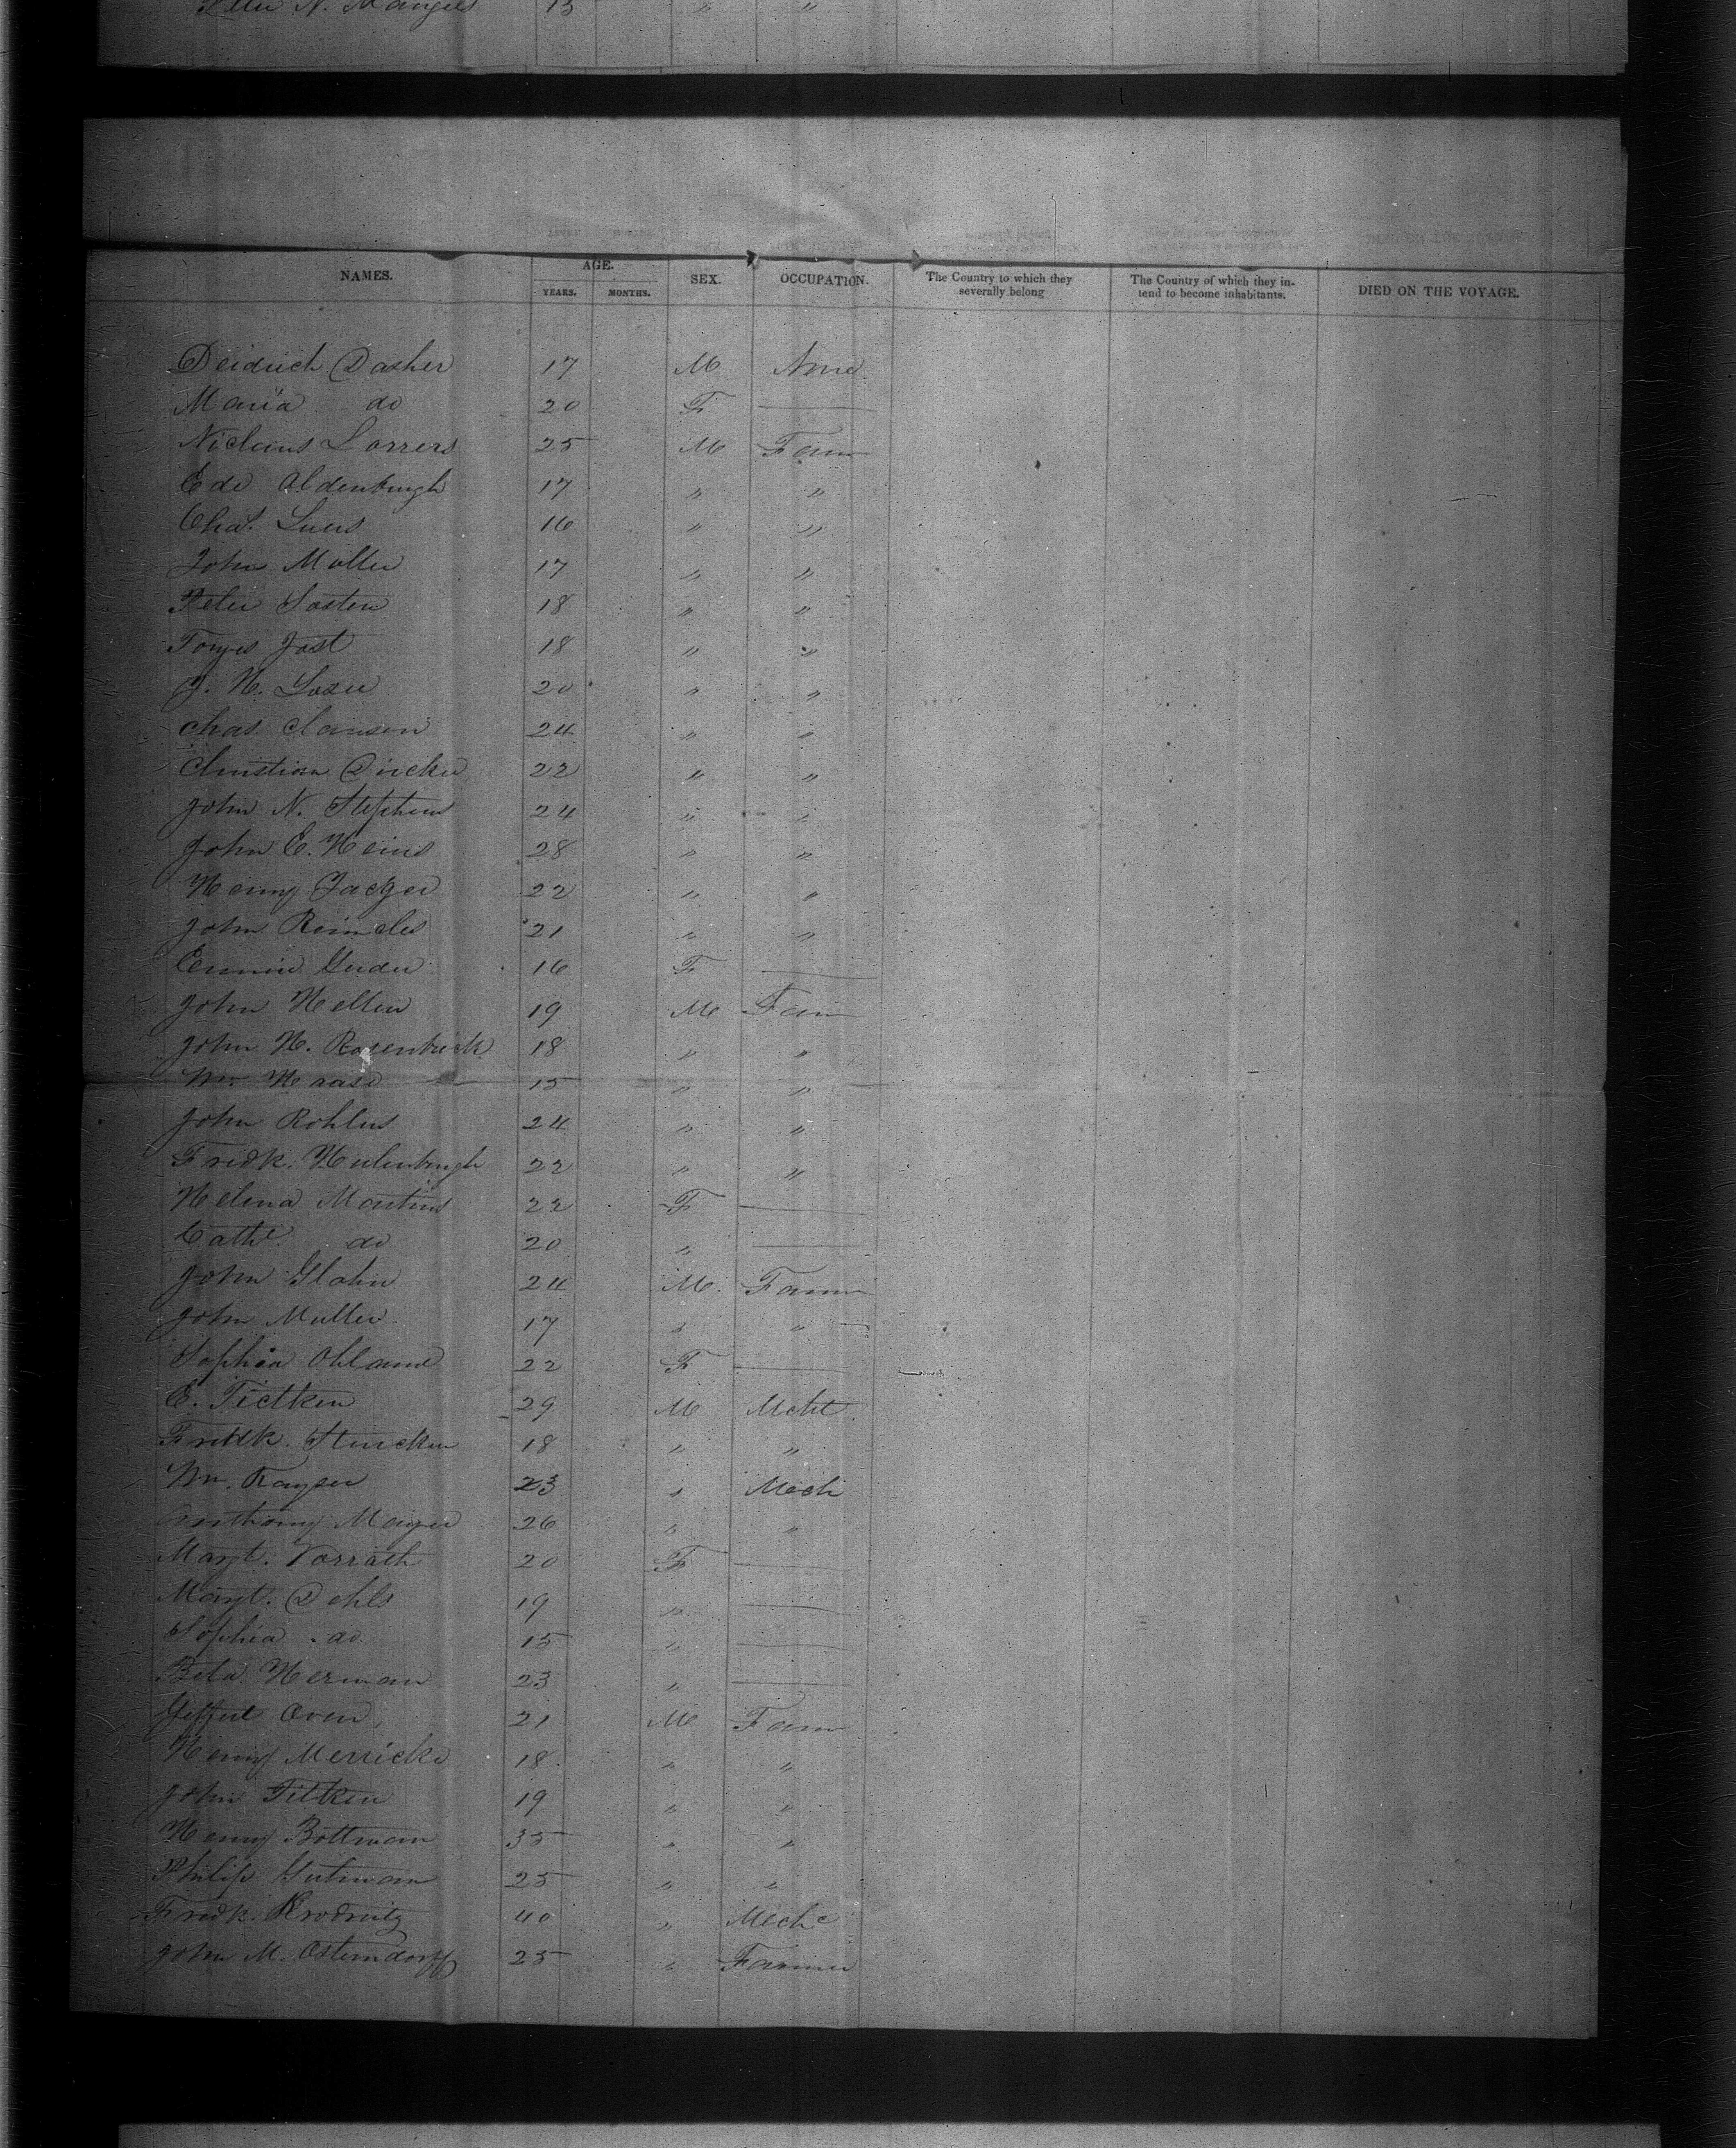 Peter N. Mangels 15 " "
NAMES. AGE. YEARS. MONTHS. SEX. OCCUPATION. The Country to which they severally belong The Country of which they in-tend to become inhabitants. DIED ON THE VOYAGE.
Deidrich Dasher 17 M None
Maria do 20 F
Niclaus Lorrers 25 M Farm
Ede Aldenburgh 17 " "
Chas. Luers 16 " "
John Muller 17 " "
Peter Sosten 18 " "
Tonyes Jost 18 " "
J. H. 20 " "
Chas Clausen 24 " "
Christian Dircke 22 " "
John N. Stephens 24 " "
John C. Heins 28 " "
Henry Jaeger 22 " "
John 21 " "
16 F
John Hellen 19 M Farm
John H. Rosenbrick 18 " "
Wm Haase 15 " "
John Rohlus 24 " "
Fredk. Hulenburgh 22 " "
Helena Martins 22 F
Cathe. do 20 "
John Glahn 24 M. Farm
John Muller 17 " "
Sophia Ohland 22 F
E. Tietken 29 M Mcht
Fredk. Stucken 18 " "
Wm. Kayser 23 " Mech
Anthony Mayer 26 " "
Margt. Vorrath 20 F
Margt. Dehls 19 "
Sophia do 15 "
Beta Herman 23 "
Oven 21 M Farm
Henry Merricke 18 " "
John Titken 19 " "
Henry Bottman 35 " "
Philip Gutman 25 " "
Fredk. 40 " Mechc
John M. Osterndorff 25 " Farmer